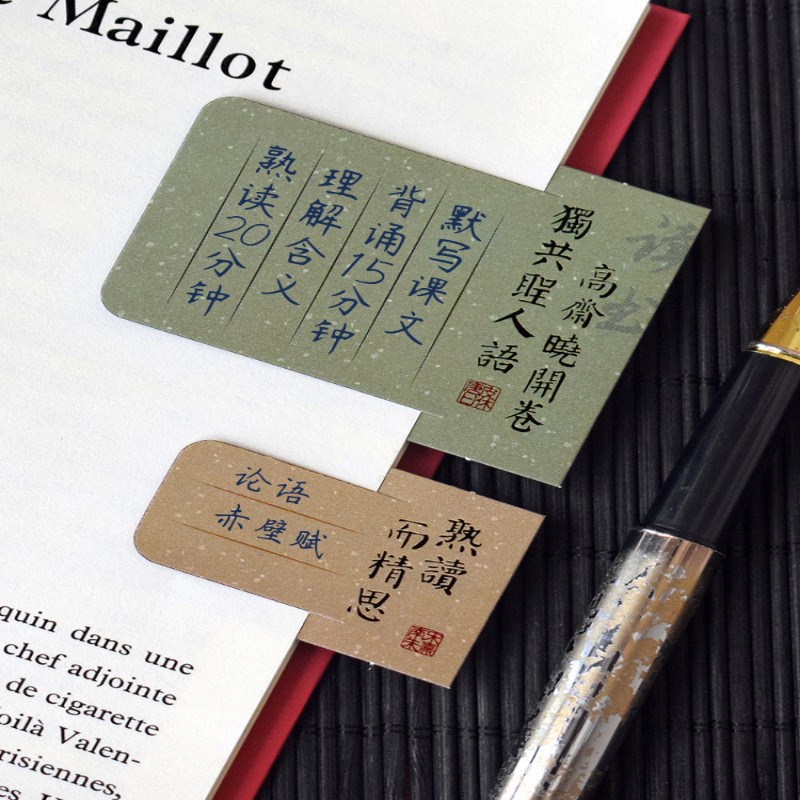 Maillot
读书
高齋曉開卷
獨共聖人語
熟读20分钟
理解含义
背诵15分钟
默写课文
熟讀
而精思
论语
赤壁赋
quin dans une
chef adjointe
de cigarette
oilà Valen-
risiennes,